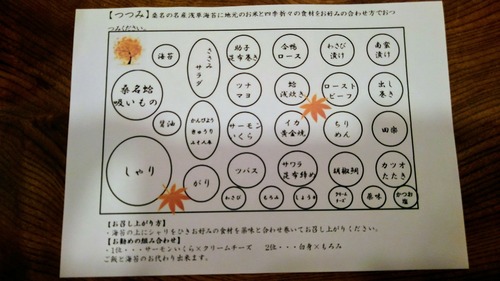 【つつみ】桑名の名産浅草海苔に地元のお米と四季折々の食材をお好みの合わせ方でおつ
つみください。
海苔
ささみ
サラダ
助子
昆布巻き
合鴨
ロース
わさび
漬け
南蛮
漬け
桑名蛤
吸いもの
ツナ
マヨ
蛤
浅炊き
ロースト
ビーフ
出し
巻き
醤油
かんぴょう
きゅうり
サーモン
いくら
イカ
黄金焼
ちり
めん
田楽
しゃり
がり
ツバス
サワラ
昆布締め
胡椒鯛
カツオ
たたき
わさび
もろみ
しょうゆ
クリーム
チーズ
薬味
かつお
塩
【お召し上がり方】
・海苔の上にシャリをひきお好みの食材を薬味と合わせ巻いてお召し上がりください。
【お勧めの組み合わせ】
・1位・・・サーモンいくら×クリームチーズ　2位・・・白身×もろみ
ご飯と海苔のお代わり出来ます。